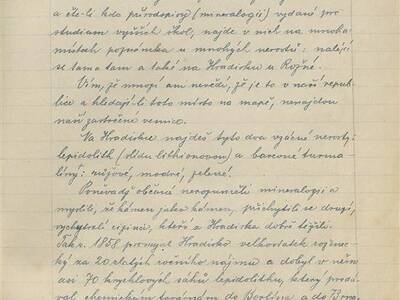 a čte-li kdo přírodopisy (mineralogii) vydané pro
studium vyšších škol, najde v nich na mnoha
místech poznámku u mnohých nerostů: naléza
se tam a tam a také na Hradisku u Rožné.
Vím, že mnozí ani nevědí, že je to v naší repub-
lice a hledají-li toto místo na mapě, nenajdou
naši zastrčenou vesnici.
Na Hradisku najdeš tyto dva vzácné nerosty:
lepidolith (slídu lithionovou) a barevné turma-
líny: růžové, modré, zelené.
Poněvadž občané nerozuměli mineralogii a
myslili, že kámen jako kámen, přichytili se druzí,
vychytralí cizinci, kteří z Hradiska dobře těžili.
Tak r. 1858 pronajal Hradisko velkostatek rožnec-
ký za 20 zlatých ročního nájmu a dobyl v něm
asi 70 krychlových sáhů lepidolithu, který prodá-
val chemickým továrnám do Berlína a do